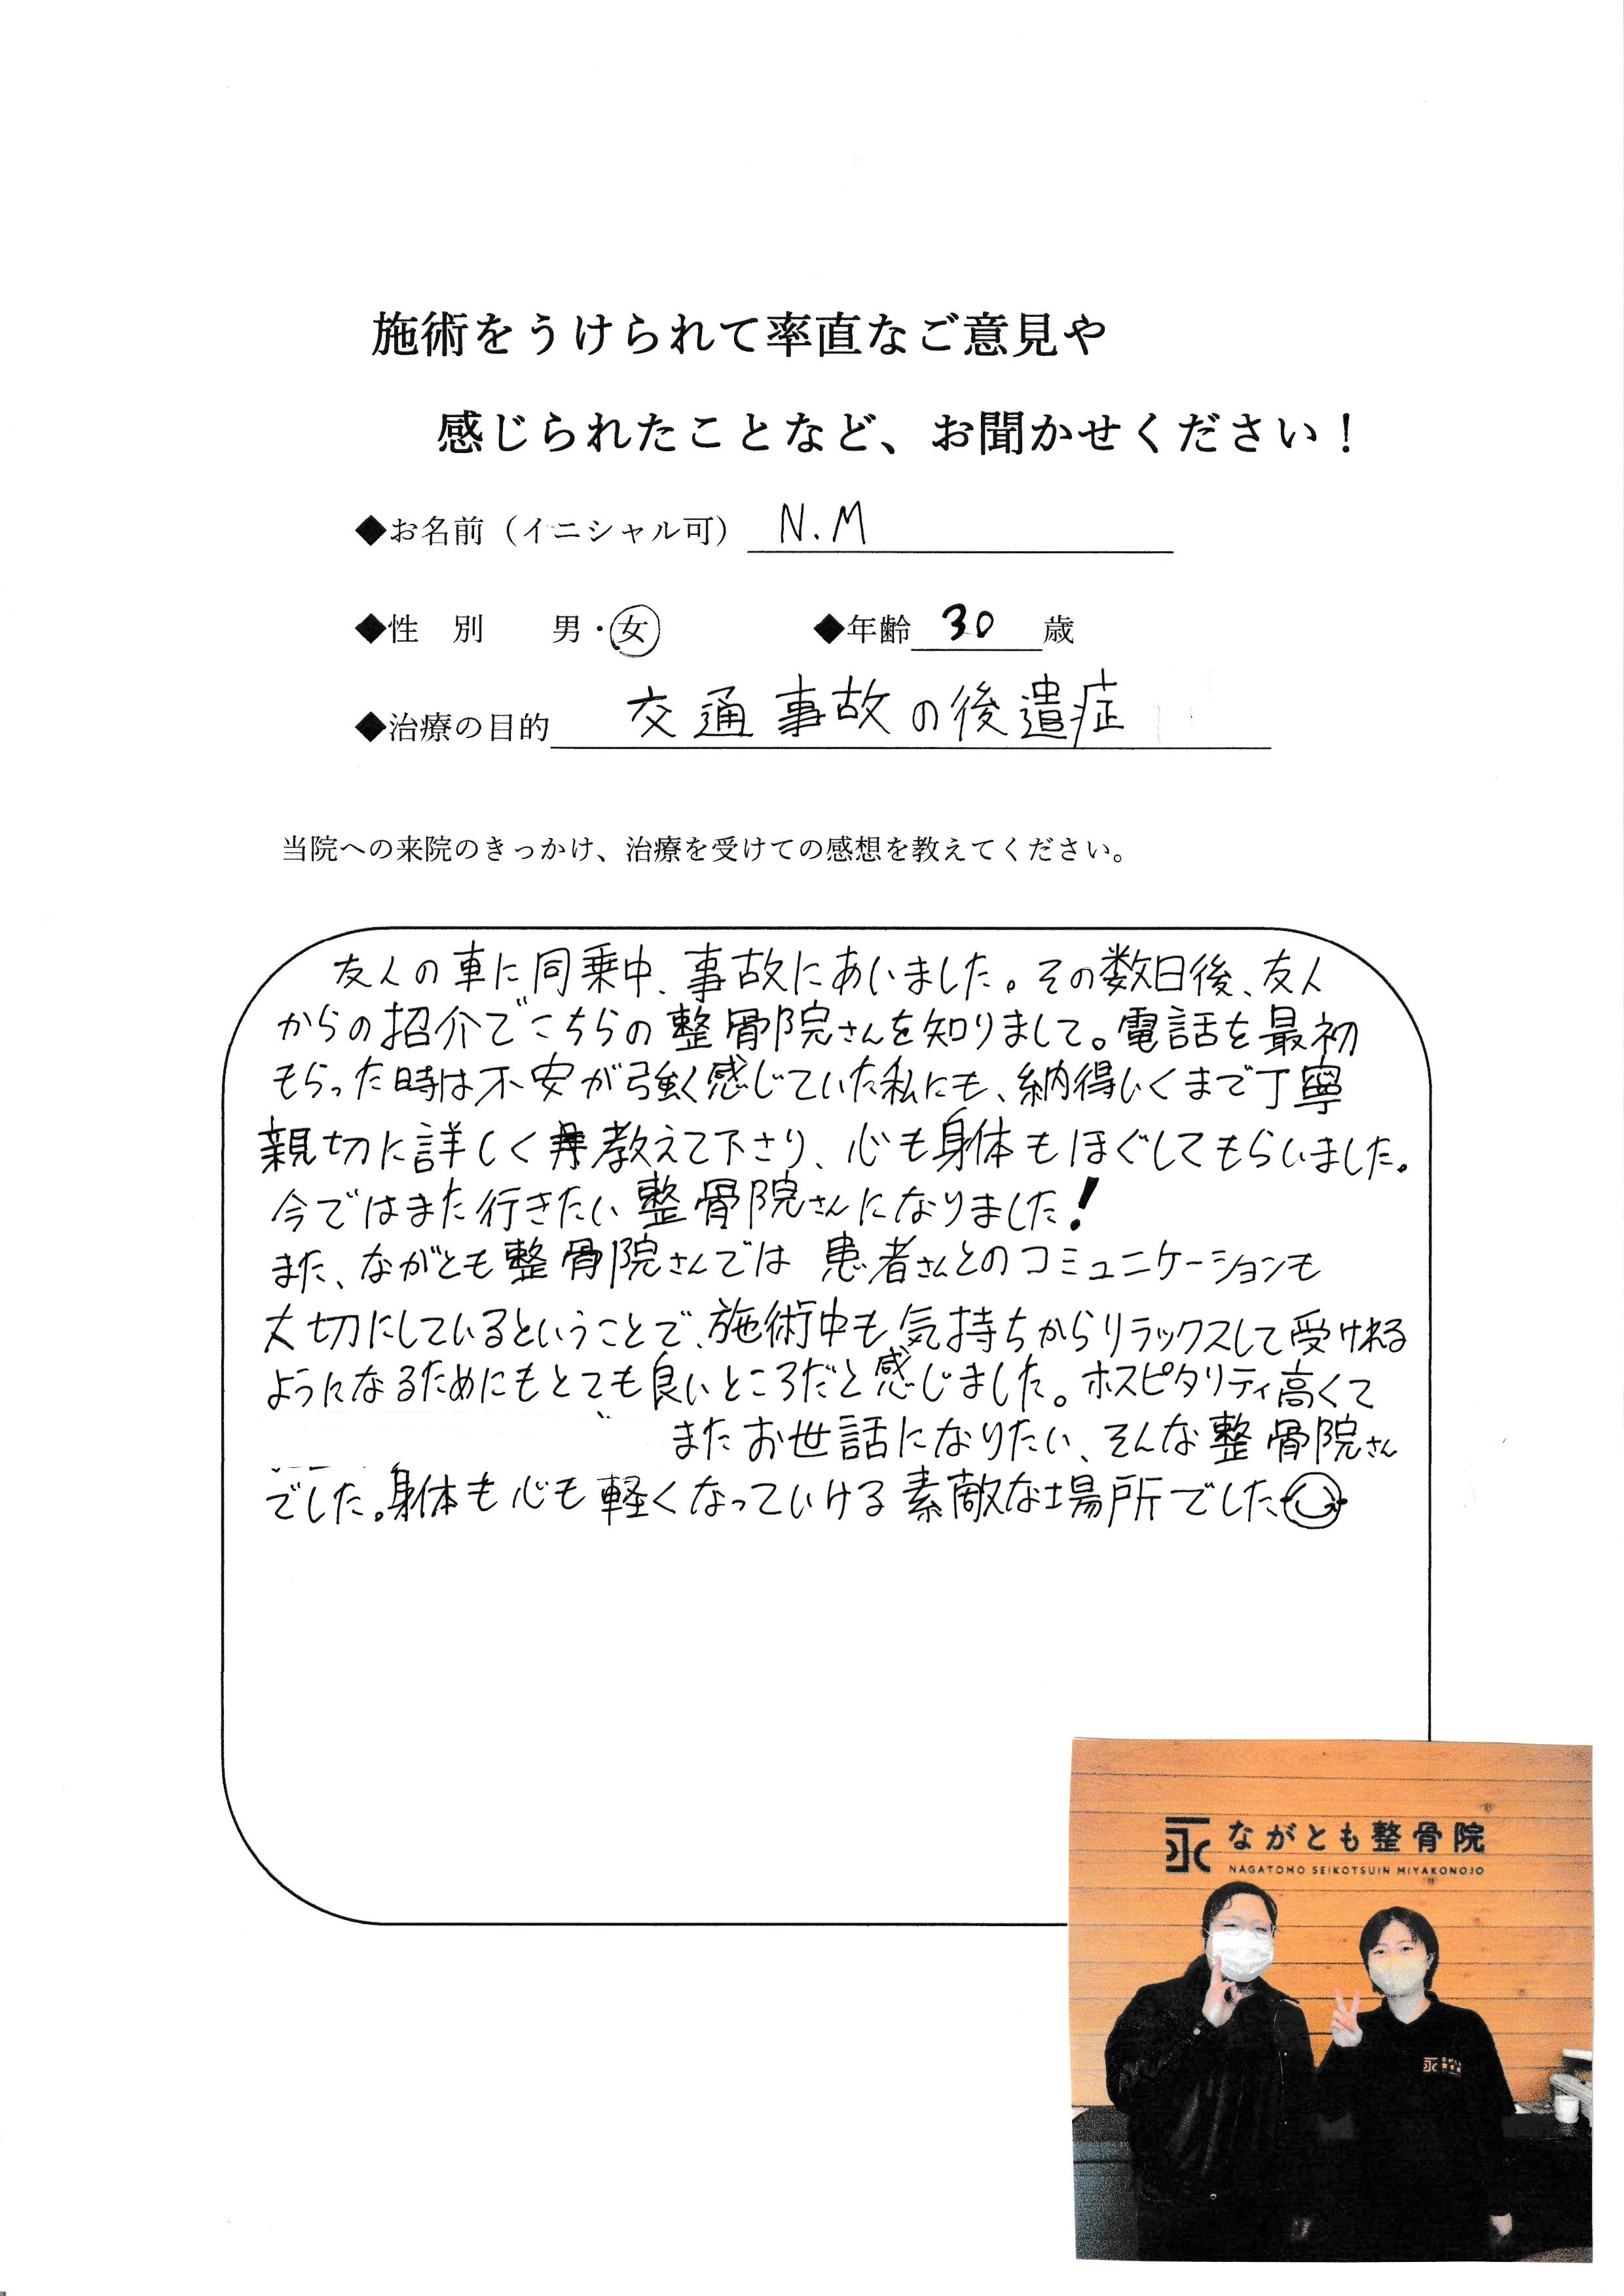 施術をうけられて率直なご意見や
感じられたことなど、お聞かせください！
◆お名前（イニシャル可） N.M
◆性　別　　男・女　　◆年齢 30 歳
◆治療の目的 交通事故の後遺症
当院への来院のきっかけ、治療を受けての感想を教えてください。
友人の車に同乗中、事故にあいました。その数日後、友人
からの招介でこちらの整骨院さんを知りまして。電話を最初
もらった時は不安が強く感じていた私にも、納得いくまで丁寧
親切に詳しく教えて下さり、心も身体もほぐしてもらいました。
今ではまた行きたい整骨院さんになりました！
また、ながとも整骨院さんでは 患者さんとのコミュニケーションも
大切にしているということで、施術中も気持ちからリラックスして受けれる
ようになるためにもとても良いところだと感じました。ホスピタリティ高くて
またお世話になりたい、そんな整骨院さん
でした。身体も心も軽くなっていける素敵な場所でした
ながとも整骨院
NAGATOMO SEIKOTSUIN MIYAKONOJO